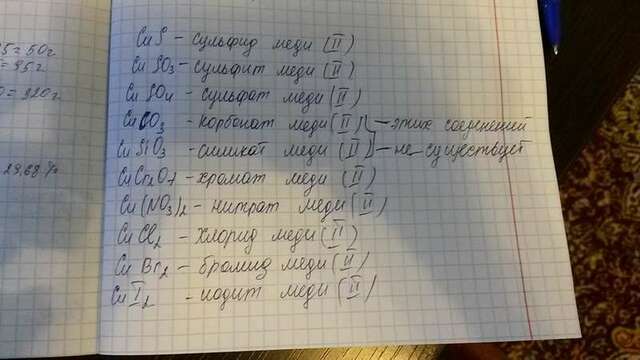 CuS - сульфид меди (II)
CuSO3 - сульфит меди (II)
CuSO4 - сульфат меди (II)
CuCO3 - карбонат меди (II) - этих соединений
CuSiO3 - силикат меди (II) - не существует
CuCr2O7 - хромат меди (II)
Cu(NO3)2 - нитрат меди (II)
CuCl2 - хлорид меди (II)
CuBr2 - бромид меди (II)
CuI2 - иодит меди (II)
= 50г
= 95г
= 320г
19,68%